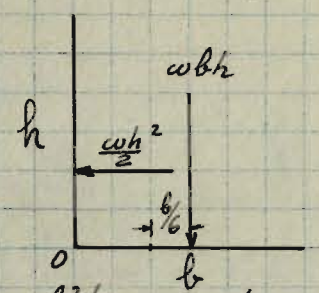 wbh
h
wh²/2
b/6
O
b